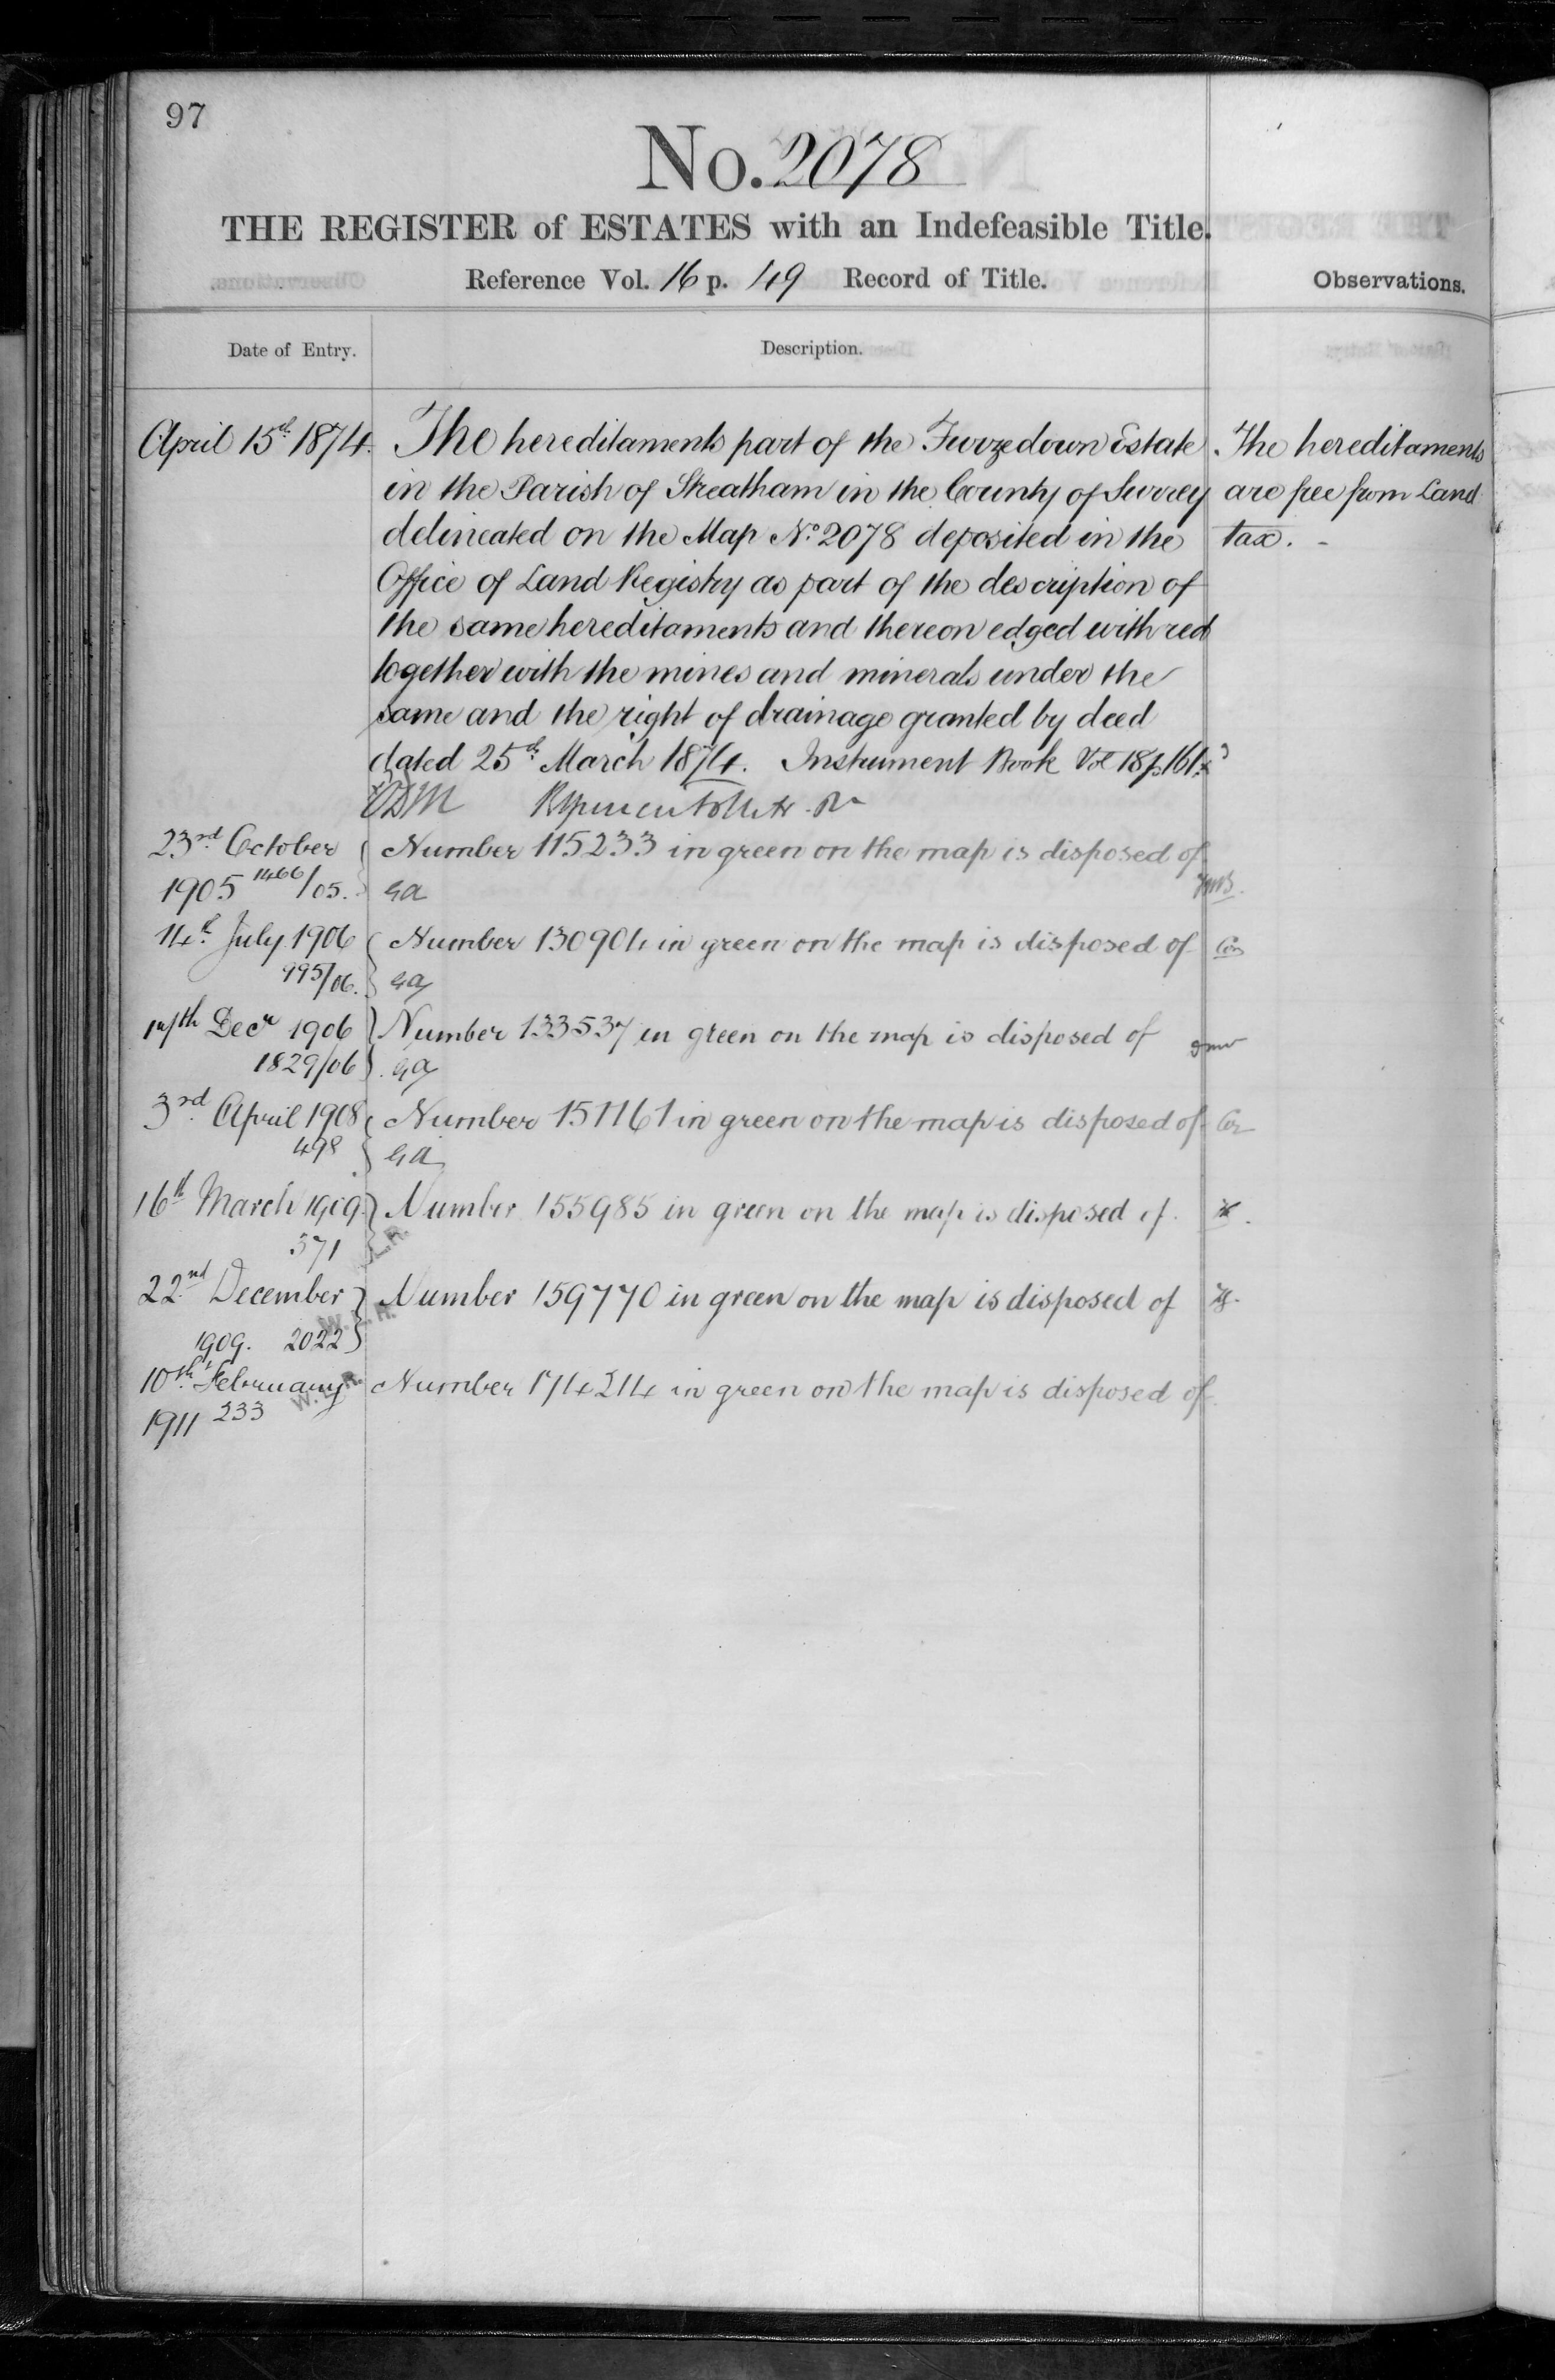 97
No. 2078
THE REGISTER of ESTATES with an Indefeasible Title.
Reference Vol. 16 p. 49 Record of Title.
Observations.
Date of Entry.
Description.
April 15th 1874. The hereditaments part of the Furzedown Estate
in the Parish of Streatham in the County of Surrey
delineated on the Map No. 2078 deposited in the
Office of Land Registry as part of the description of
the same hereditaments and thereon edged with red
together with the mines and minerals under the
same and the right of drainage granted by deed
dated 25th March 1874. Instrument Book Vol 18 p. 161.
The hereditaments
are free from Land
tax. -
23rd October Number 115233 in green on the map is disposed of
1905 1466/05.
14th July 1906 Number 130904 in green on the map is disposed of
995/06.
17th Decr 1906 Number 133537 in green on the map is disposed of
1829/06
3rd April 1908 Number 151161 in green on the map is disposed of
498
16th March 1909 Number 155985 in green on the map is disposed of.
371
22nd December Number 159770 in green on the map is disposed of
1909. 2022
10th February Number 174214 in green on the map is disposed of
1911 233